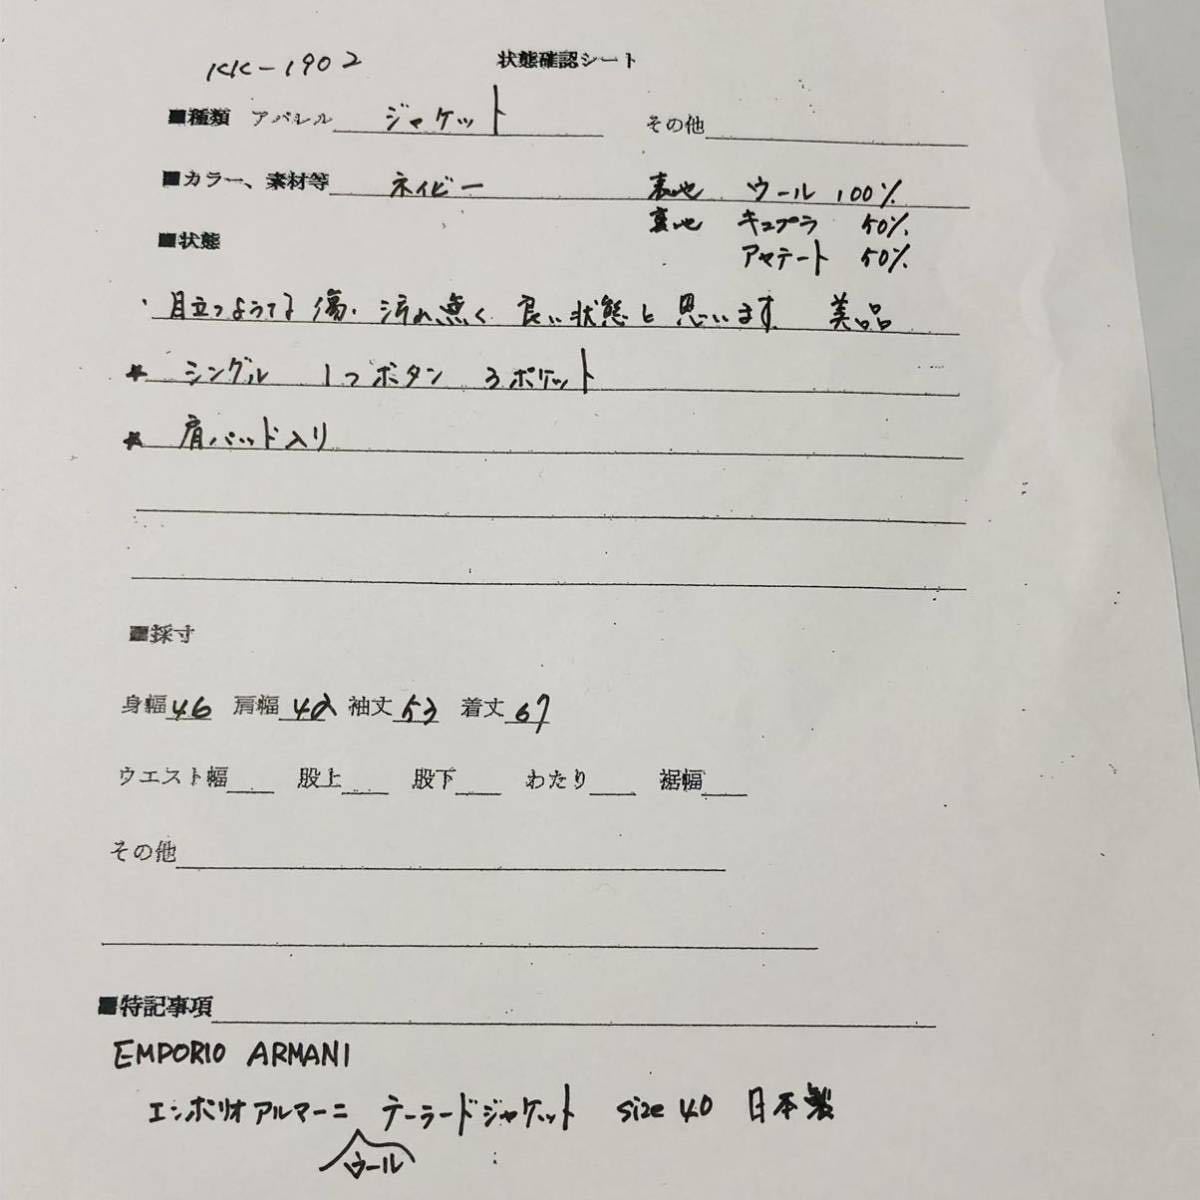 KK-1902 状態確認シート
■種類 アパレル ジャケット その他
■カラー、素材等 ネイビー 表地 ウール 100%
裏地 キュプラ 50%
■状態
アセテート 50%
・目立つような傷、汚れ無く 良い状態と思います 美品
* シングル 1つボタン 3ポケット
* 肩パッド入り
■採寸
身幅46 肩幅42 袖丈53 着丈67
ウエスト幅 股上 股下 わたり 裾幅
その他
■特記事項
EMPORIO ARMANI
エンポリオアルマーニ テーラードジャケット size 40 日本製
ウール